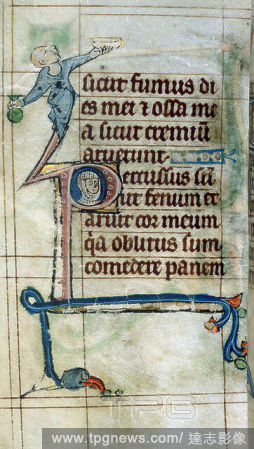 sicut fumus di
es mei ⁊ ossa me
a sicut cremiū
aruerunt.
Percussus sū
ut fenum et
aruit cor meum
q̇a oblitus sum
comedere panem
TPG
www.tpgnews.com/ 達志影像